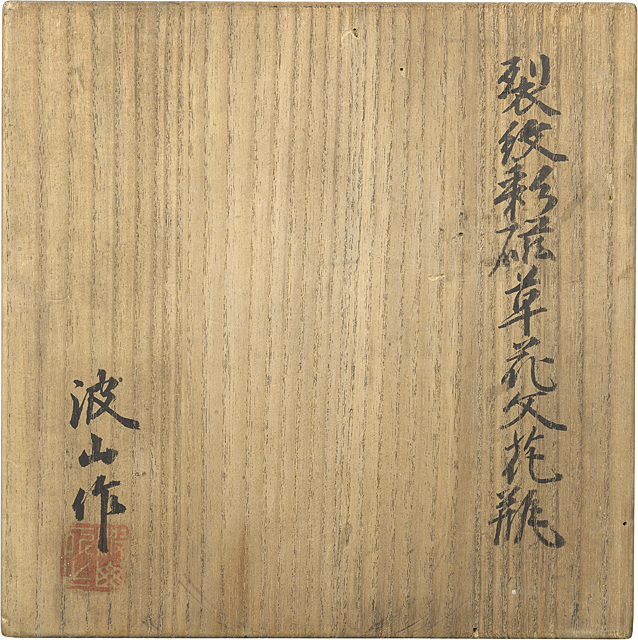 裂紋彩磁草花文花瓶
波山作